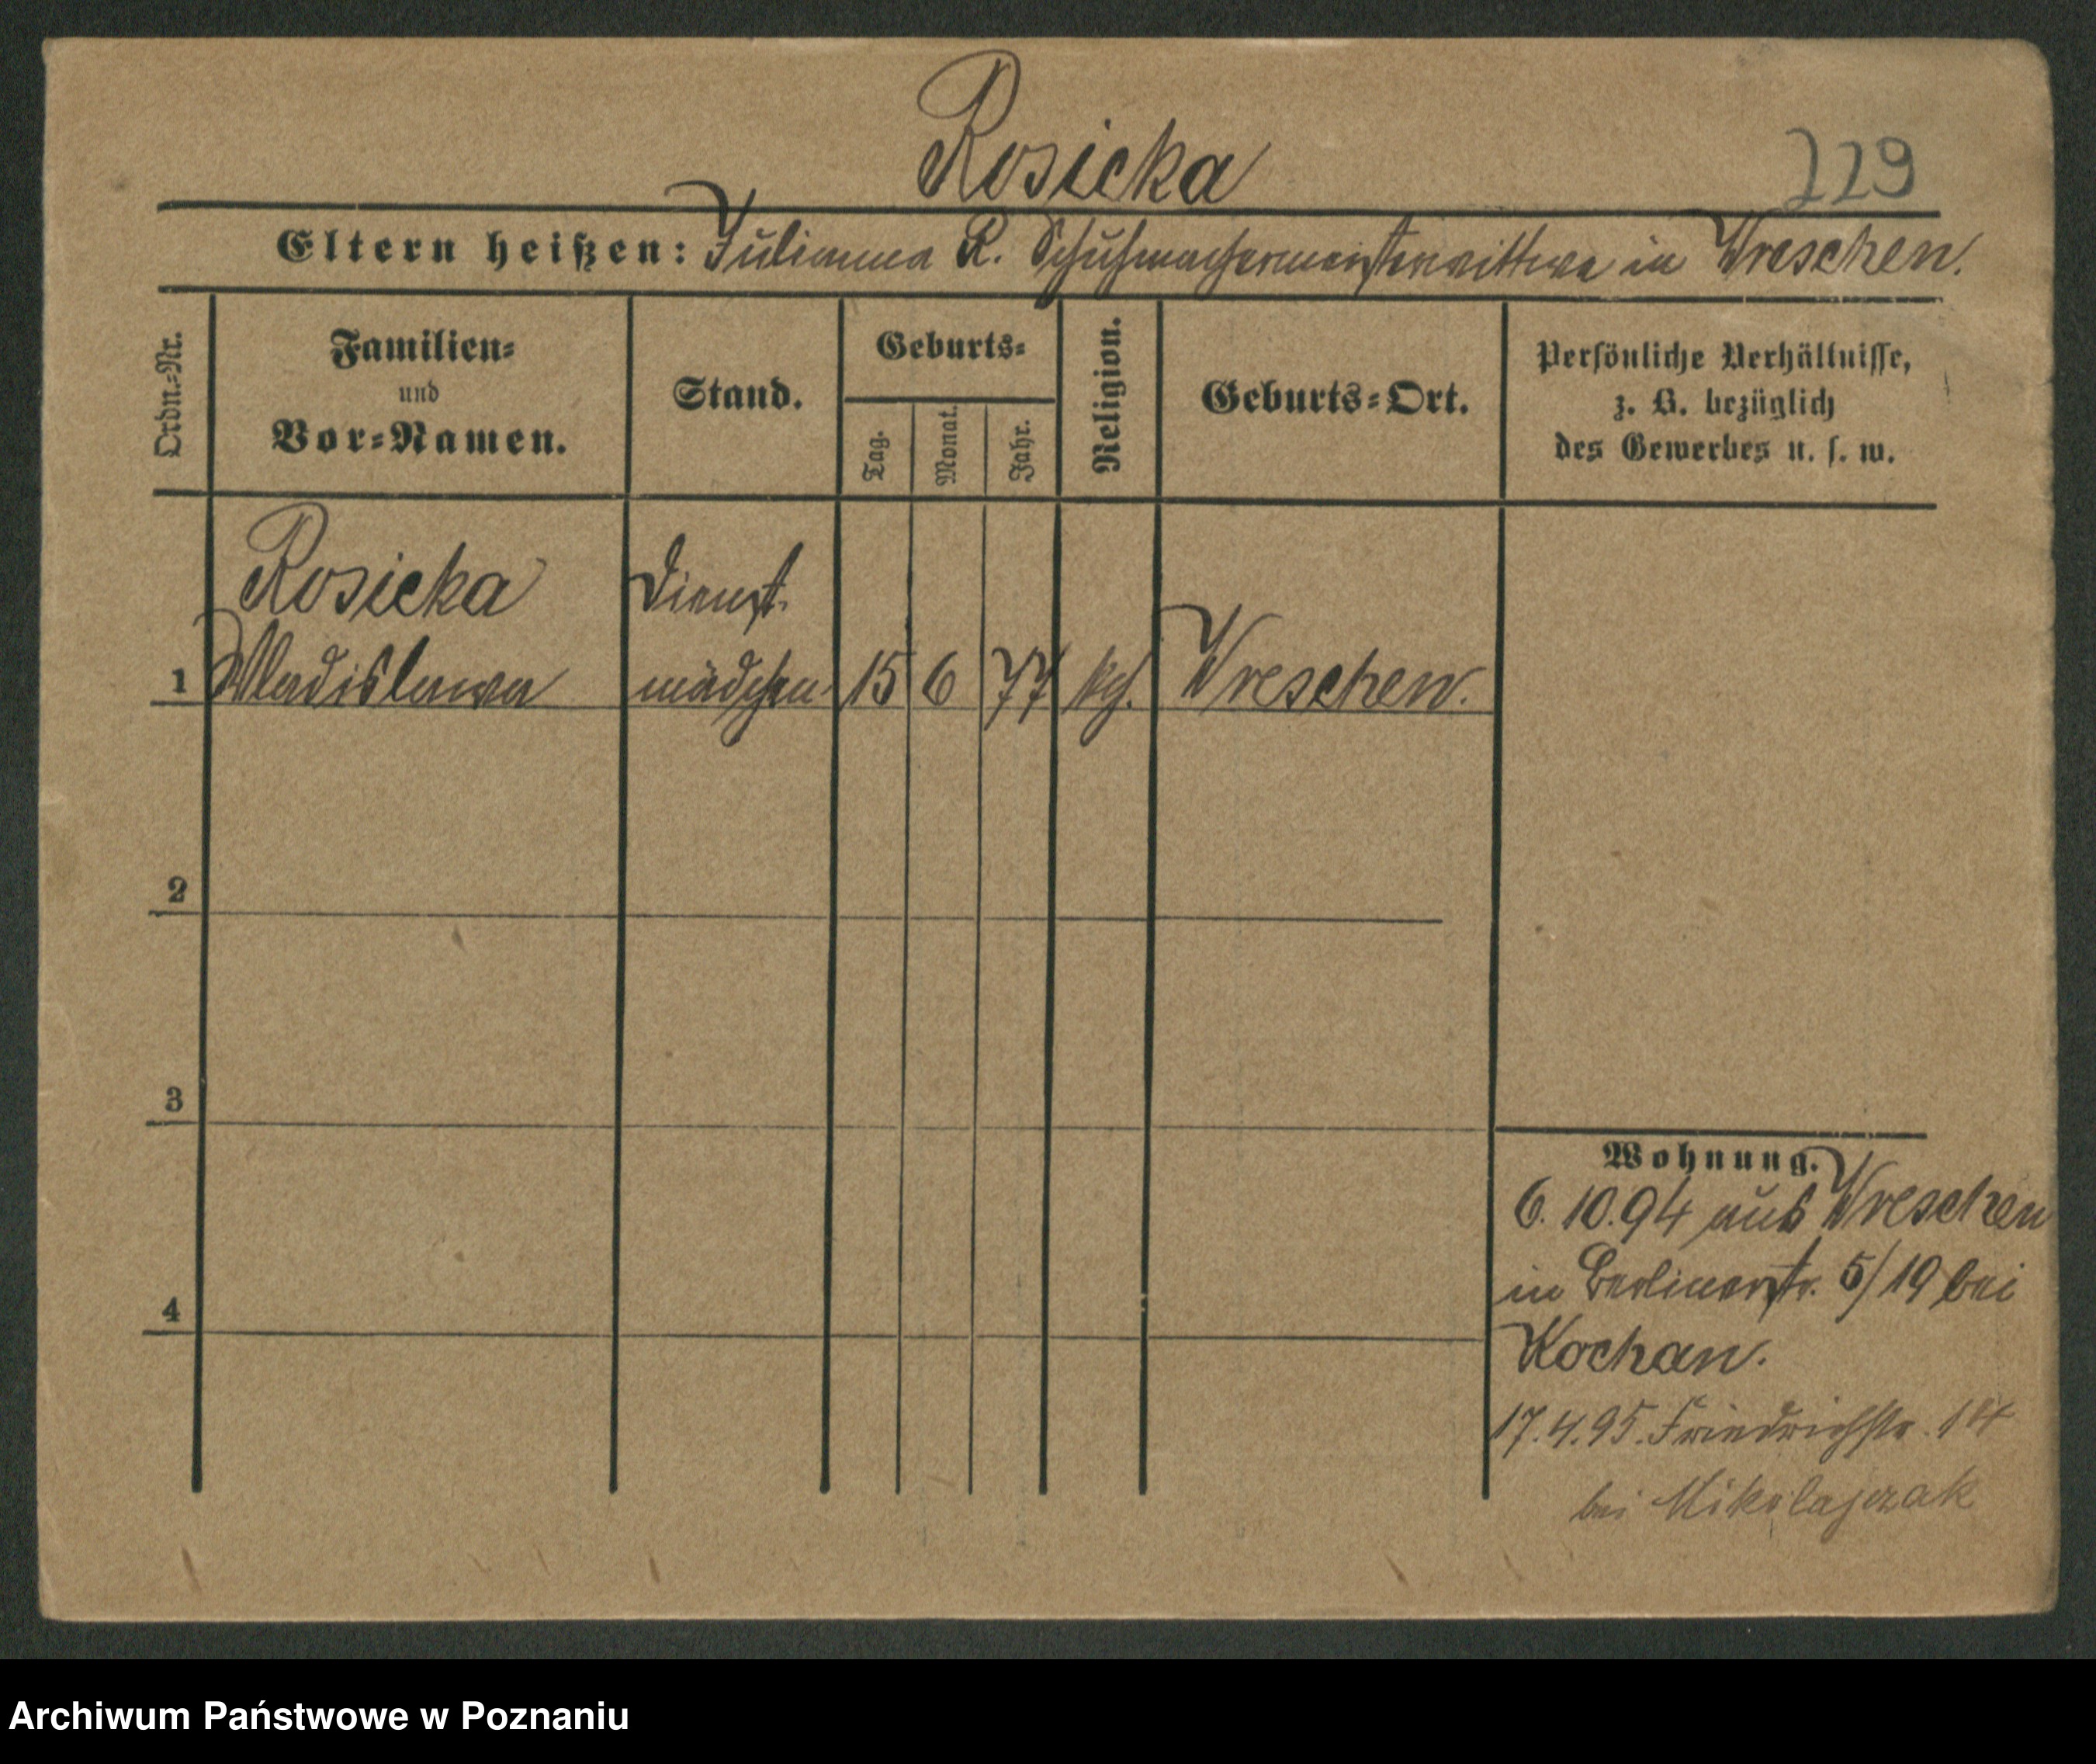 Rosicka
229
Eltern heißen: Julianna R. Schuhmachermeisterwittwe in Wreschen.
Ordn.-Nr.
Familien-
und
Vor-Namen.
Stand.
Geburts-
Tag.
Monat.
Jahr.
Religion.
Geburts-Ort.
Persönliche Verhältnisse,
z. B. bezüglich
des Gewerbes u. s. w.
Rosicka Dienst-
1 Wladislawa mädchen 15 6 77 kth. Wreschen.
2
3
4
Wohnung.
6. 10. 94 aus Wreschen
in Berlinerstr. 5/19 bei
Kochan.
17. 4. 95. Friedrichstr. 14
bei Mikolajczak
Archiwum Państwowe w Poznaniu